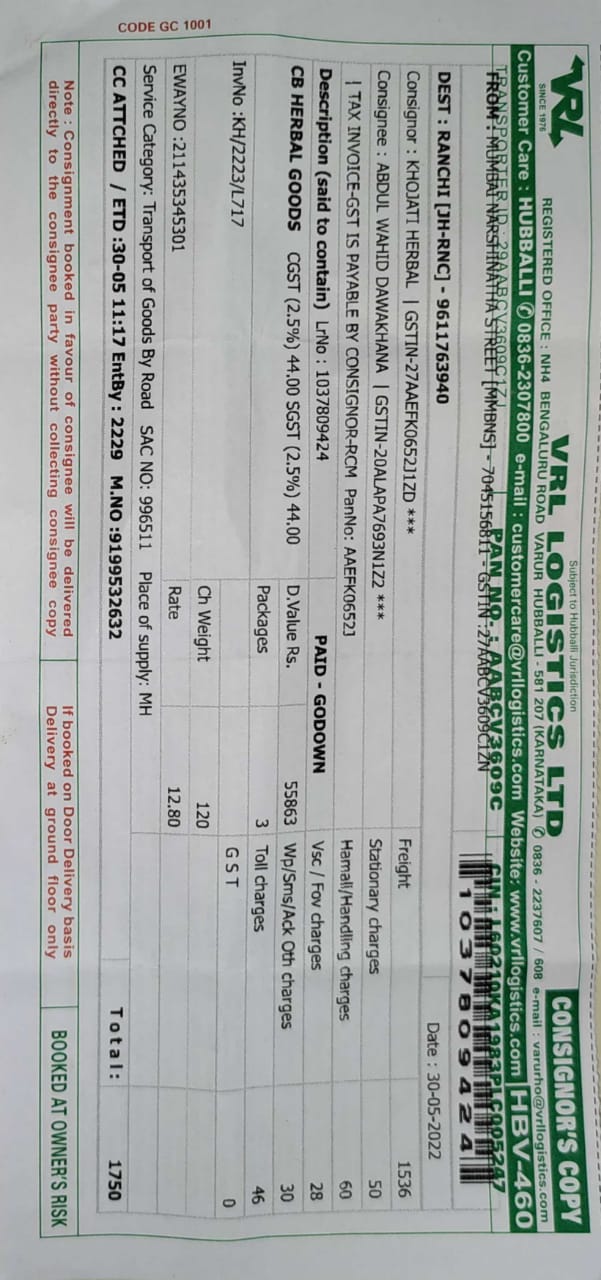 CODE GC 1001
VRL
SINCE 1976
Subject to Hubballi Jurisdiction
VRL LOGISTICS LTD
CONSIGNOR'S COPY
REGISTERED OFFICE : NH4 BENGALURU ROAD VARUR HUBBALLI - 581 207 (KARNATAKA) ✆ 0836 - 2237607 / 608 e-mail : varurho@vrllogistics.com
Customer Care : HUBBALLI ✆ 0836-2307800 e-mail : customercare@vrllogistics.com Website: www.vrllogistics.com HBV-460
TRANSPORTER ID : 29AABCV3609C1ZJ PAN NO. : AABCV3609C CIN : L60210KA1983PLC005247
FROM : MUMBAI NARSHINATHA STREET [MMBNS] - 7045156811 - GSTIN-27AABCV3609C1ZN
1037809424
DEST : RANCHI [JH-RNC] - 9611763940
Date : 30-05-2022
Consignor : KHOJATI HERBAL | GSTIN-27AAEFK0652J1ZD ***
Freight 1536
Consignee : ABDUL WAHID DAWAKHANA | GSTIN-20ALAPA7693N1Z2 ***
Stationary charges 50
| TAX INVOICE-GST IS PAYABLE BY CONSIGNOR-RCM PanNo: AAEFK0652J
Hamali/Handling charges 60
Description (said to contain) LrNo : 1037809424 PAID - GODOWN
Vsc / Fov charges 28
CB HERBAL GOODS CGST (2.5%) 44.00 SGST (2.5%) 44.00
D.Value Rs. 55863
Wp/Sms/Ack Oth charges 30
Packages 3
Toll charges 46
InvNo :KH/2223/L717
G S T 0
Ch Weight 120
EWAYNO :211435345301
Rate 12.80
Service Category: Transport of Goods By Road SAC NO: 996511 Place of supply: MH
CC ATTCHED / ETD :30-05 11:17 EntBy : 2229 M.NO :9199532632
Total: 1750
Note : Consignment booked in favour of consignee will be delivered
directly to the consignee party without collecting consignee copy
If booked on Door Delivery basis
Delivery at ground floor only
BOOKED AT OWNER'S RISK